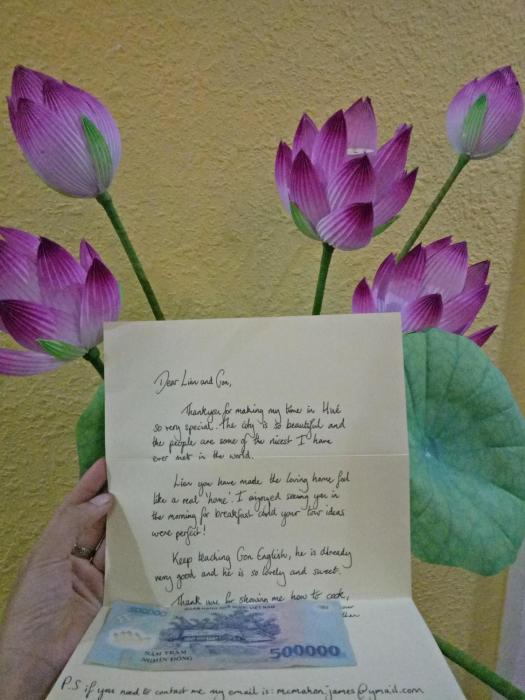 Dear Lien and Gon,
Thankyou for making my time in Hué
so very special. The city is so beautiful and
the people are some of the nicest I have
ever met in the world.
Lien you have made the loving home feel
like a real 'home'. I enjoyed seeing you in
the morning for breakfast and your tour ideas
were perfect!
Keep teaching Gon English, he is already
very good and he is so lovely and sweet.
Thank for showing me how to cook,
500000
NĂM TRĂM
NGHÌN ĐỒNG
500000
P.S if you need to contact me my email is: mcmahonjames@ymail.com